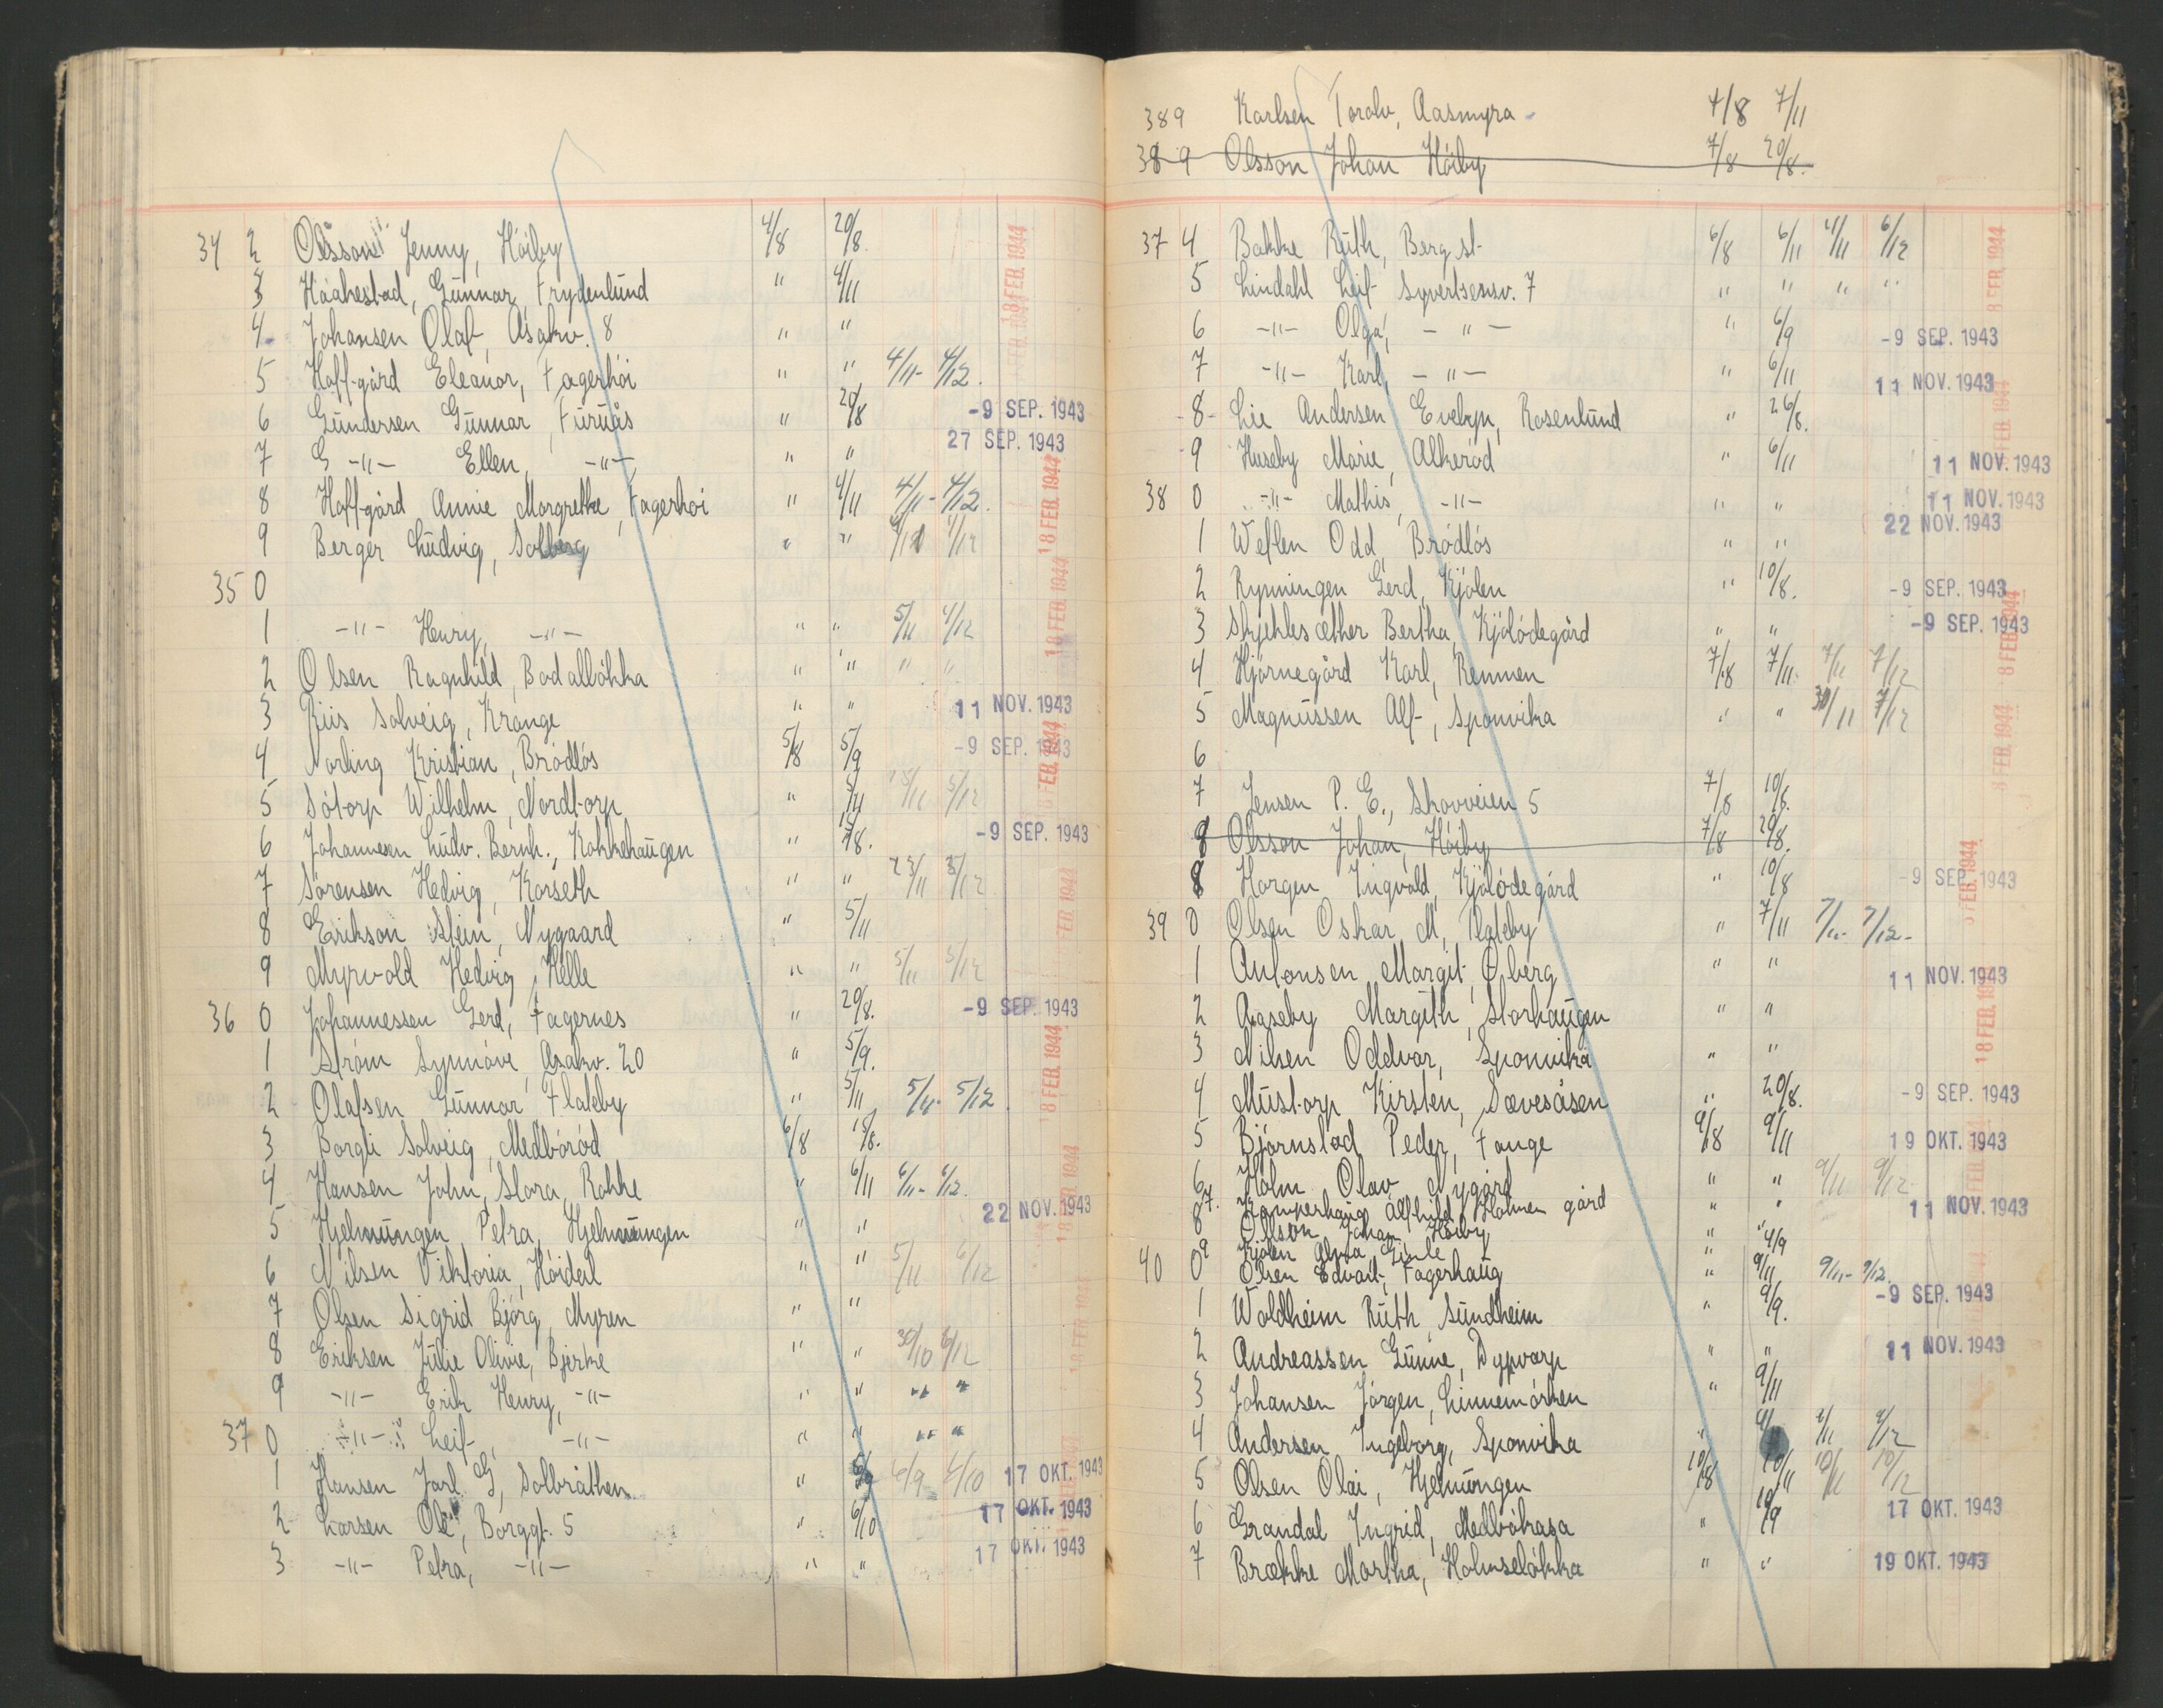 34 2 Olsson Jenny, Höiby 4/8 20/8.
3 Håkestad, Gunnar, Frydenlund " 4/11
4. Johansen Olaf, Asakv. 8 " "
5 Hoffgård Eleanor, Fagerhöi " " 4/11- 4/12.
6 Gundersen Gunnar, Furuås " 20/8 -9 SEP. 1943
7 G -"- Ellen, -"- " " 27 SEP. 1943
8 Hoffgård Annie Margrethe, Fagerhöi " 4/11 4/11- 4/12.
9 Berger Ludvig, Solberg " "
35 0
1 -"- Henry, -"- " " 5/11 4/12
2 Olsen Ragnhild, Bodalløkka " " " "
3 Riis Solveig, Krange " " 11 NOV. 1943
4 Norling Kristian, Brödlös 5/8 5/9 -9 SEP. 1943
5 Sötorp Wilhelm, Nordtorp " 5/11 5/12
6 Johannesen Ludv. Bernh., Kokkehaugen " -9 SEP. 1943
7 Sörensen Hedvig, Korseth " " 23/11 5/12
8 Erikson Stein, Nygaard " 5/11
9 Myrvold Hedvig, Helle " " 5/11 5/12
36 0 Johannessen Gerd, Fagernes " 20/8. -9 SEP. 1943
1 Ström Synnöve, Asakv. 20 " 5/9.
2 Olafsen Gunnar Flateby " 5/11 5/11- 5/12
3 Borgli Solveig, Medböröd 6/8 15/8.
4 Hansen John, Stora Rokke " 6/11 6/11- 6/12.
5 Hjelmungen Petra, Hjelmungen " " 22 NOV. 1943
6 Nilsen Viktoria, Höidal " " 5/11 6/12
7 Olsen Sigrid Björg, Myren " "
8 Eriksen Julie Olivie, Bjerke " " 30/10 6/12
9 -"- Erik Henry, -"- " " " "
37 0 -"- Leif, -"- " " " "
1 Hansen Jarl G, Solbråthen " 6/9 6/9 6/10 17 OKT. 1943
2 Larsen Ole, Borggt. 5 " 6/10 17 OKT. 1943
3 -"- Petra, -"- " " 17 OKT. 1943
18 FEB. 1944
18 FEB. 1944
18 FEB. 1944
18 FEB. 1944
18 FEB. 1944
389 Karlsen Torolv, Aasmyra 7/8 7/11
389 Olsson Johan Höiby 7/8 20/8.
37 4 Bakke Ruth, Berg st. 6/8 6/11 4/11 6/12
5 Lindahl Leif Syvertsensv. 7 " " " "
6 -"- Olga, -"- " 6/9 -9 SEP. 1943
7 -"- Karl, -"- " 6/11 11 NOV. 1943
8 Lie Andersen Evelyn, Rosenlund " 26/8.
9 Huseby Marie, Alkeröd " 6/11 11 NOV. 1943
38 0 -"- Mathis, -"- " " 11 NOV. 1943
1 Weflen Odd, Brödlös " " 22 NOV. 1943
2 Rynningen Gerd, Kjölen " 10/8. -9 SEP. 1943
3 Skjeklesæther Bertha, Kjölödegård " " -9 SEP. 1943
4 Hjörnegård Karl, Remmen 7/8 7/11 7/11 7/12
5 Magnussen Alf, Sponvika " " 30/11 7/12
6
7 Jensen P. E., Skovveien 5 7/8 10/8.
8 Olsson Johan, Höiby 7/8 20/8.
8 Horgen Ingvald, Kjölödegård " 10/8 -9 SEP. 1943
39 0 Olsen Oskar M, Flateby " 7/11 7/11- 7/12-
1 Antonsen Margit, Öberg " " 11 NOV. 1943
2 Aaseby Margith, Storhaugen " "
3 Nilsen Oddvar, Sponvika " "
4 Mustorp Kirsten, Sævesåsen " 20/8. -9 SEP. 1943
5 Björnstad Peder, Fange 9/8 9/11 19 OKT. 1943
6 Holm Olav Nygård " " 9/11 9/12
7. Kamperhaug Alfhild, Holmen gård " " 11 NOV. 1943
8 Olsson Johan Höiby " 4/9
9 Kjölen Alma Gimle " "
40 0 Olsen Edvart, Fagerhaug " 9/11 9/11- 9/12.
1 Woldheim Ruth, Sundheim " 9/9. -9 SEP. 1943
2 Andreassen Gunne, Dypvarp " " 11 NOV. 1943
3 Johansen Jörgen, Linnemörken " 9/11
4 Andersen Ingeborg, Sponvika "
5 Olsen Olai, Hjelmungen 10/8 10/11 10/11 10/12
6 Grandal Ingrid, Medbökasa " 10/9 17 OKT. 1943
7 Brække Martha, Holmseløkka " " 19 OKT. 1943
8 FEB. 1944
8 FEB. 1944
8 FEB. 1944
8 FEB. 1944
18 FEB. 1944